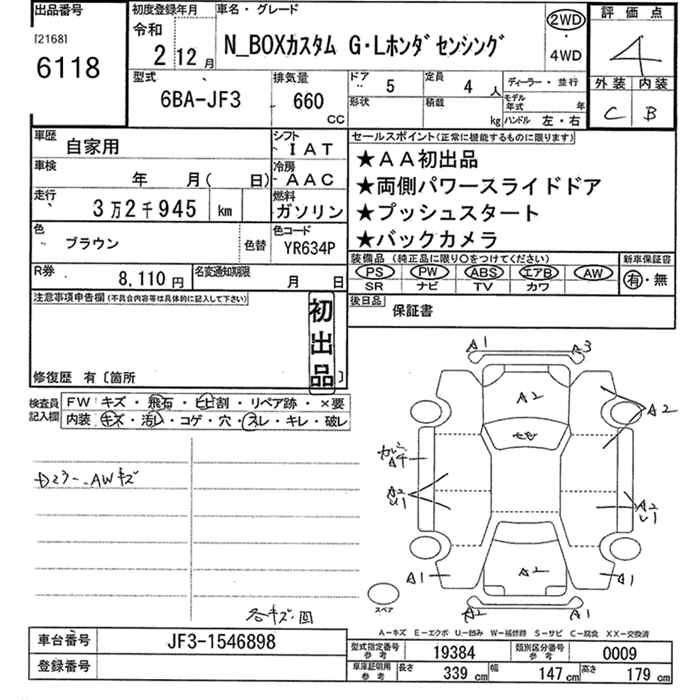 出品番号
[2168]
6118
初度登録年月
令和
2 12月
車名・グレード
N_BOXカスタム G・Lホンダセンシング
2WD
・
4WD
評価点
4
外装 内装
C B
型式
6BA-JF3
排気量
660
CC
ドア
5
定員
4 人
形状
積載
kg
ディーラー・並行
モデル年式 年
ハンドル 左・右
車歴
自家用
シフト
IAT
車検
年 月( 日)
冷房
AAC
走行
3万2千945 km
燃料
ガソリン
色
ブラウン
色替
色コード
YR634P
R券
8,110円
名変通知期限
月 日
セールスポイント(正常に機能するものに限ります)
★AA初出品
★両側パワースライドドア
★プッシュスタート
★バックカメラ
装備品(純正品に限り○をつけてください)
PS PW ABS エアB AW
SR ナビ TV カワ
新車保証書
有・無
後日品
保証書
注意事項申告欄(不具合内容等は具体的に記入して下さい)
初出品
修復歴 有〔箇所 〕
検査員記入欄
FW キズ・飛石・ヒビ割・リペア跡・×要
内装 キズ・汚レ・コゲ・穴・スレ・キレ・破レ
AWキズ
各キズ・凹
A1 A3
A2
A2
A4
A2
U1
A2
U1
A1
A2
A1
A2 A1
スペア
A-キズ E-エクボ U-凹み W-補修跡 S-サビ C-腐食 XX-交換済
車台番号
JF3-1546898
登録番号
型式指定番号参考
19384
類別区分番号参考
0009
車庫証明用参考
長さ 339 cm 幅 147 cm 高さ 179 cm